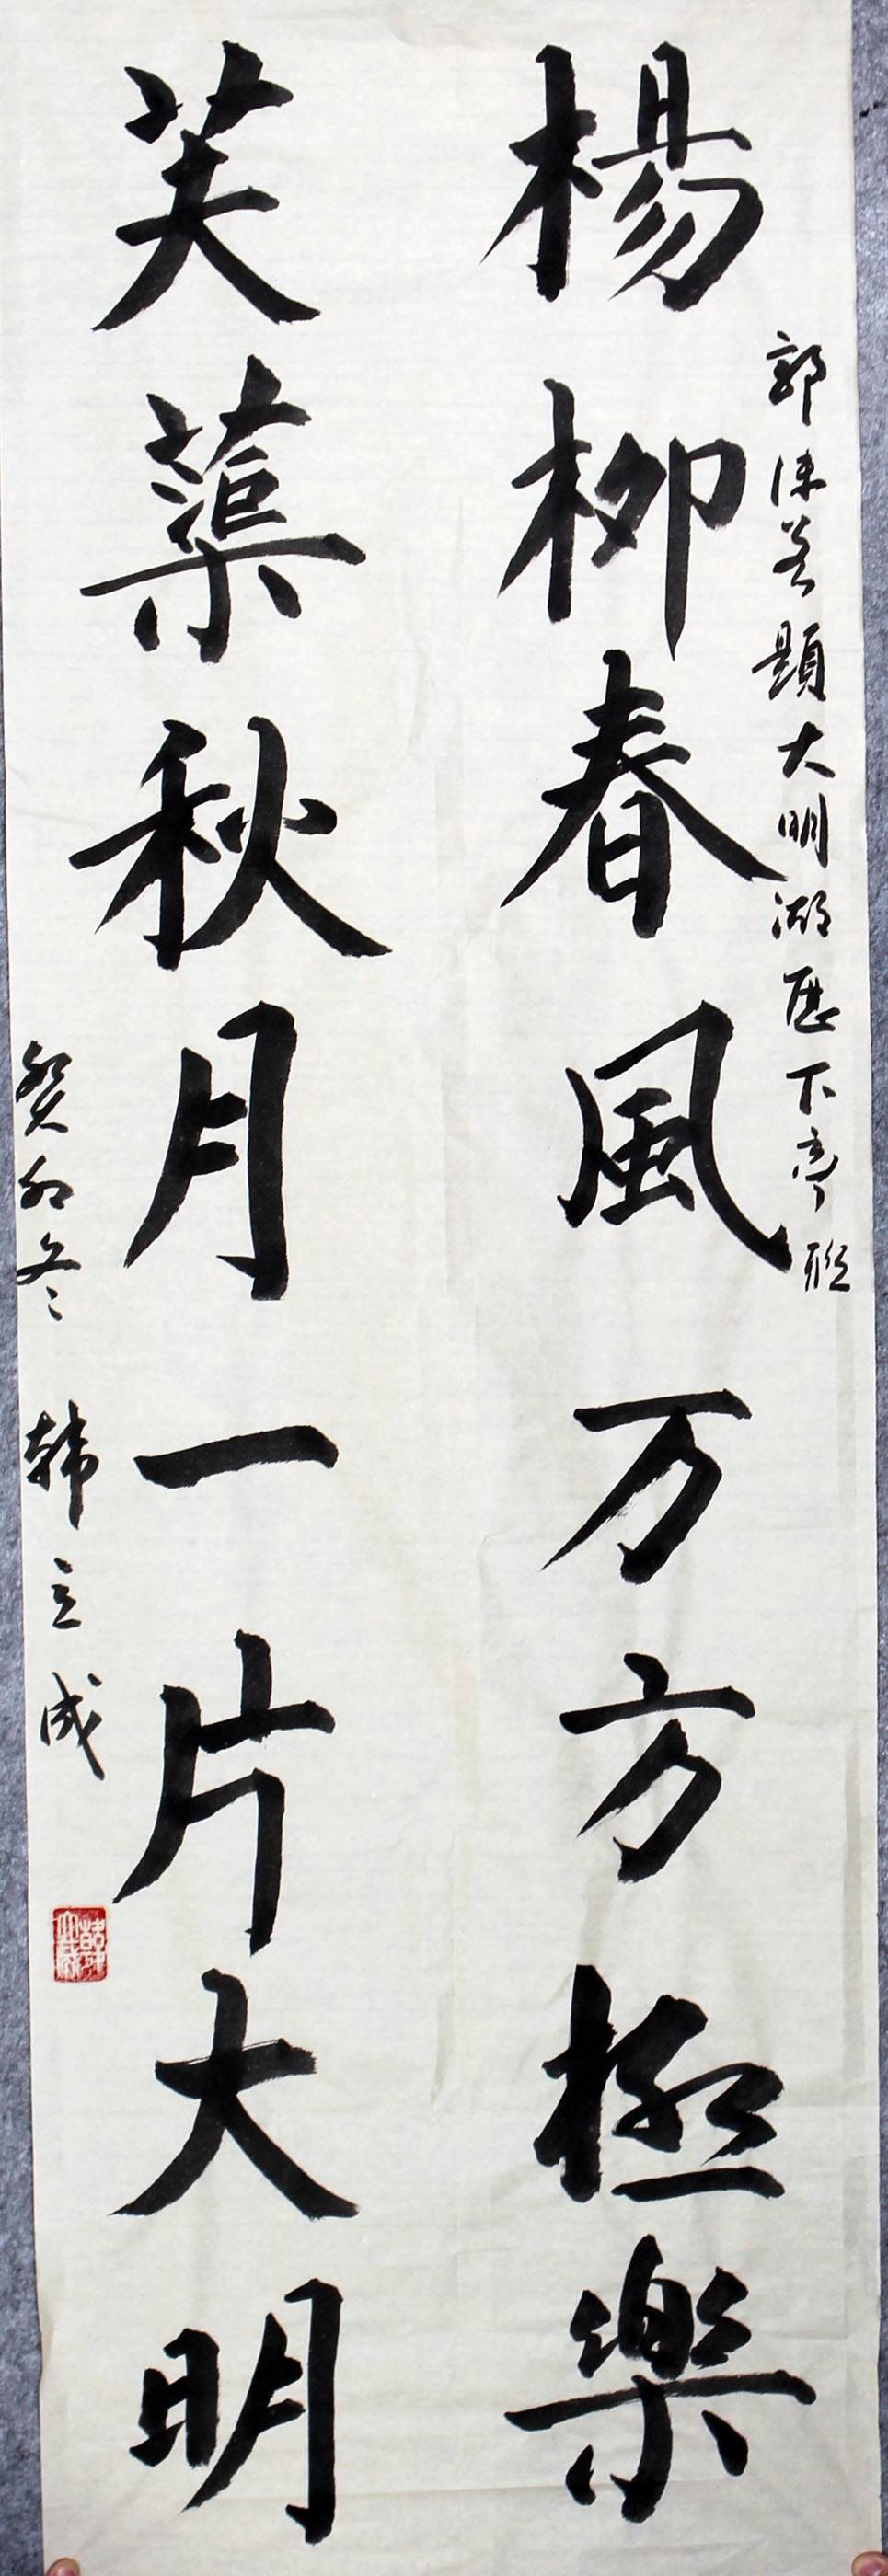 郭沫若題大明湖歷下亭联
楊柳春風万方極樂
芙蕖秋月一片大明
癸卯冬 韩立成